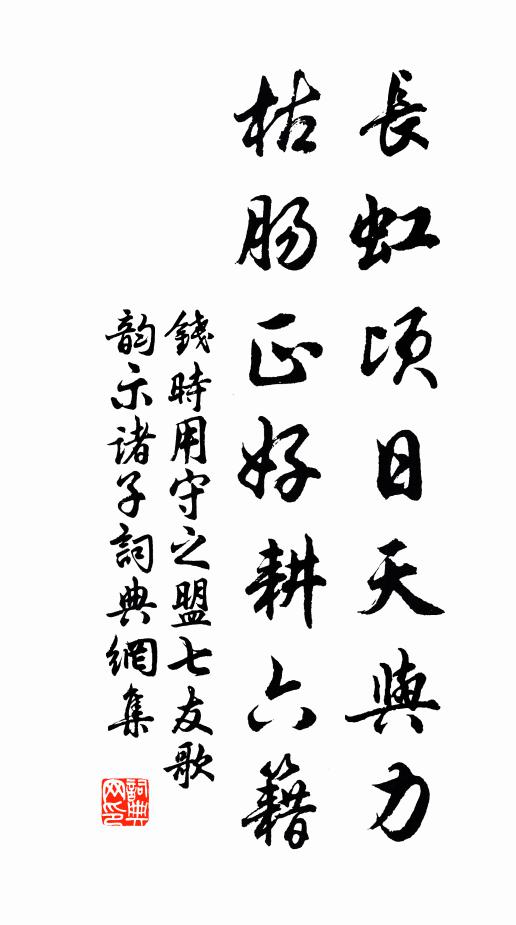 長虹頃日天與力
枯腸正好耕六籍
錢時用守之盟七友歌
韵示諸子詞典網集
詞典网印